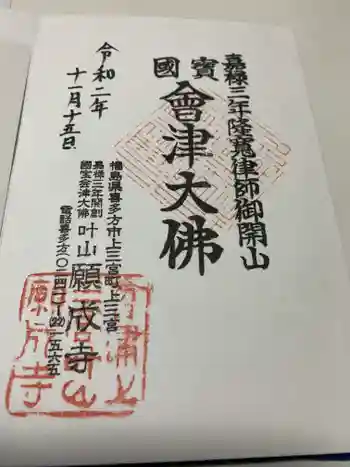 嘉禄三年隆寛律師御開山
國寳
會津大佛
福島県喜多方市上三宮町上三宮
嘉禄三年開創
国宝会津大佛
叶山
願成寺
電話喜多方(〇二四一)(22)一五六五
令和二年
十一月十五日
願成寺